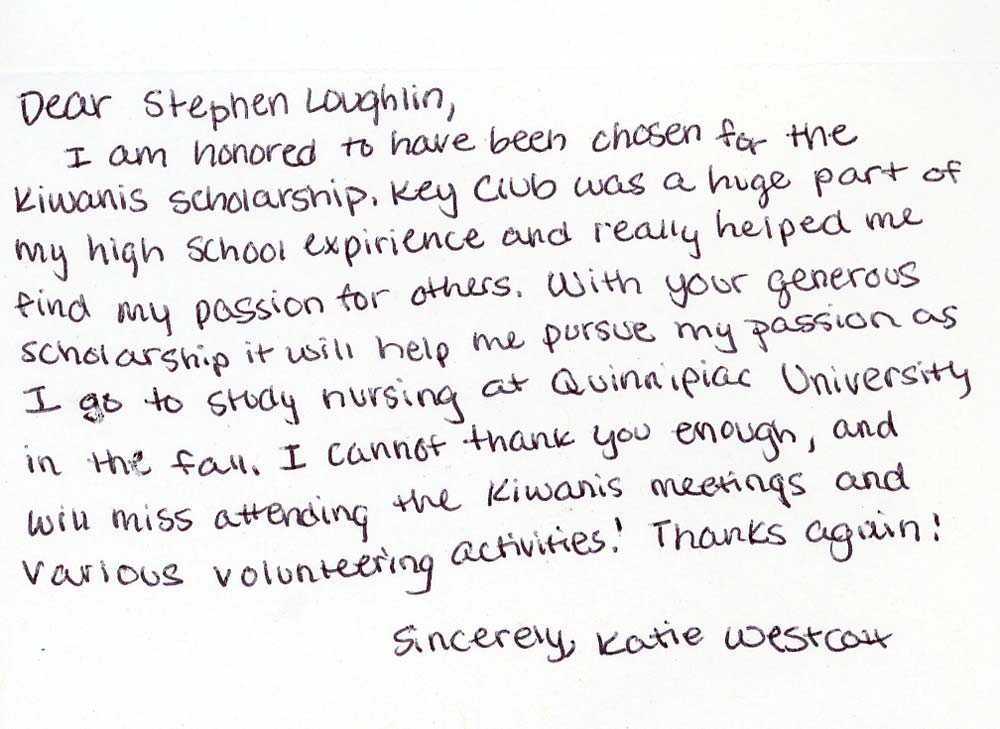 Dear Stephen Loughlin,
I am honored to have been chosen for the
Kiwanis scholarship. Key Club was a huge part of
my high school expirience and really helped me
find my passion for others. With your generous
scholarship it will help me pursue my passion as
I go to study nursing at Quinnipiac University
in the fall. I cannot thank you enough, and
will miss attending the Kiwanis meetings and
various volunteering activities! Thanks again!
Sincerely, Katie Westcott